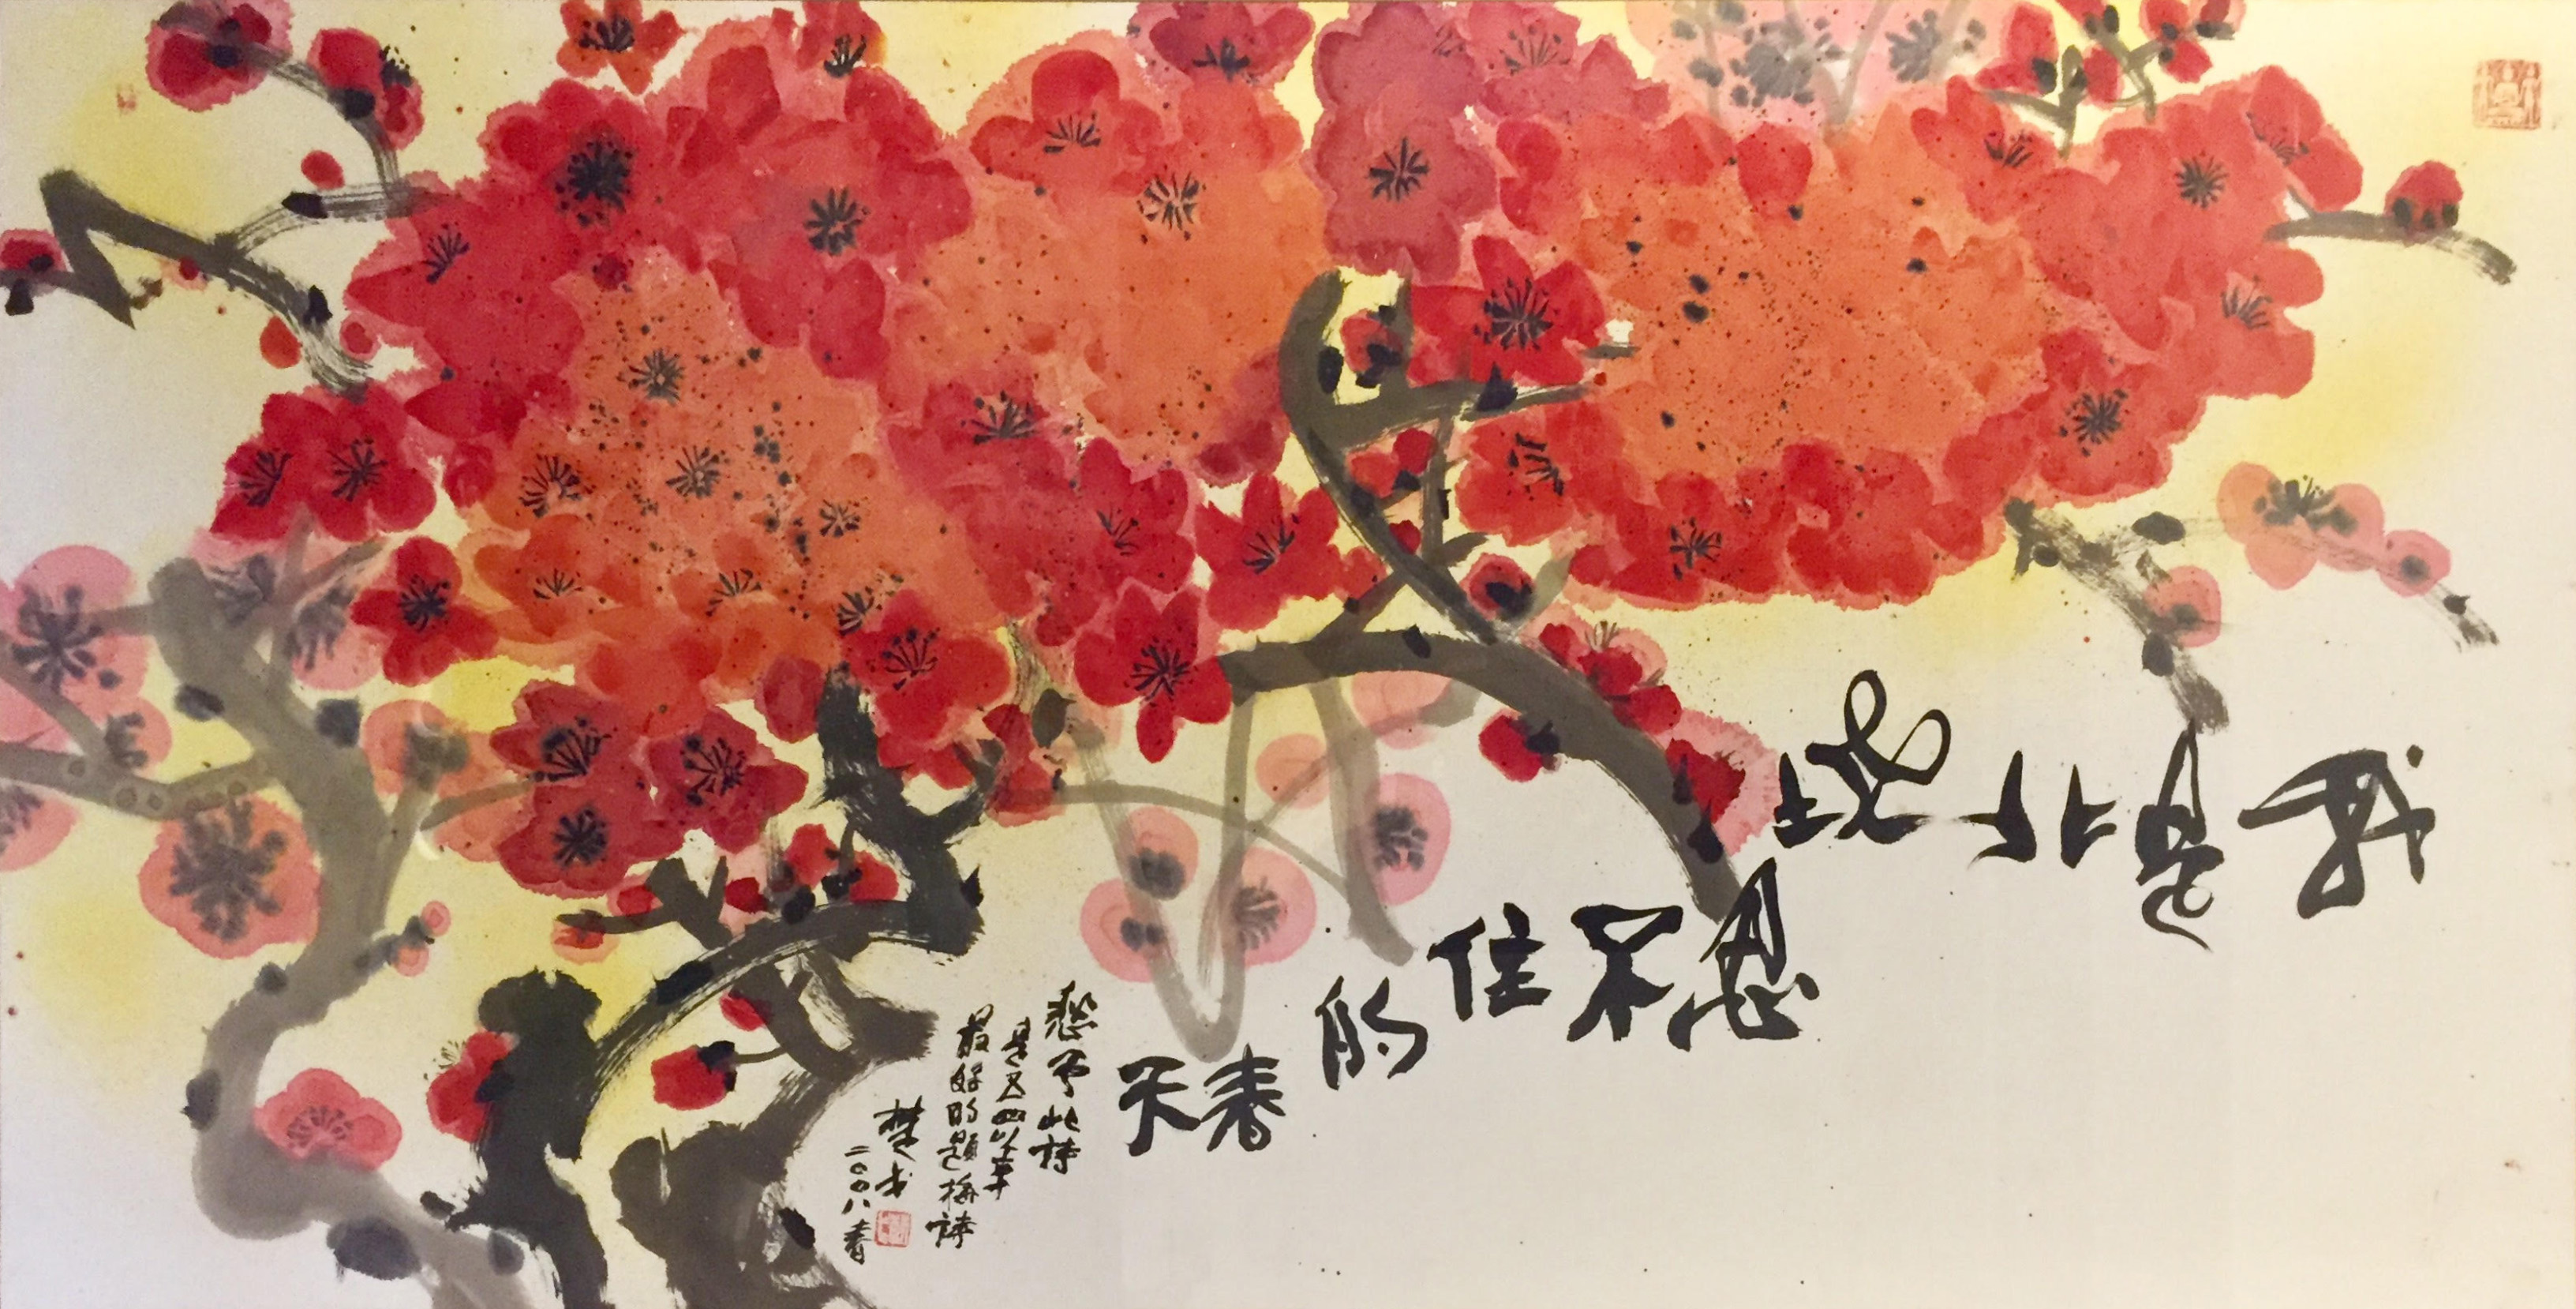 我是北地
忍不住的
春天
愁予此詩
是五四以來
最好的題梅詩
楚戈
二〇〇八春